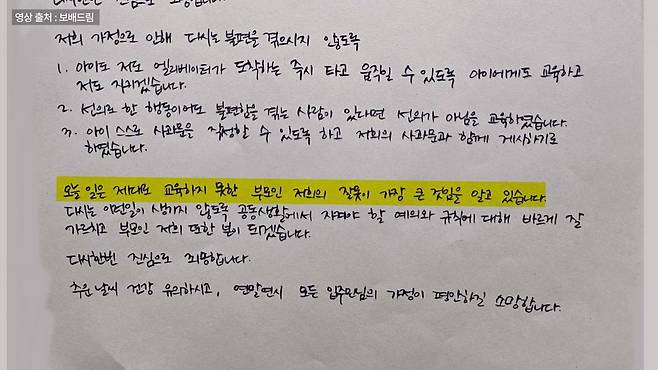 영상 출처 : 보배드림
저희 가정으로 인해 다시는 불편을 겪으시지 않도록
1. 아이도 저도 엘리베이터가 도착하는 즉시 타고 움직일 수 있도록 아이에게도 교육하고
저도 지키겠습니다.
2. 선의로 한 행동이어도 불편함을 겪는 사람이 있다면 선의가 아님을 교육하였습니다.
3. 아이 스스로 사과문을 작성할 수 있도록 하고 저희의 사과문과 함께 게시하기로
하였습니다.
오늘 일은 제대로 교육하지 못한 부모인 저희의 잘못이 가장 큰 것임을 알고 있습니다.
다시는 이런일이 생기지 않도록 공동생활에서 지켜야 할 예의와 규칙에 대해 바르게 잘
가르치고 부모인 저희 또한 본이 되겠습니다.
다시한번 진심으로 죄송합니다.
추운 날씨 건강 유의하시고, 연말연시 모든 입주민님의 가정이 평안하길 소망합니다.